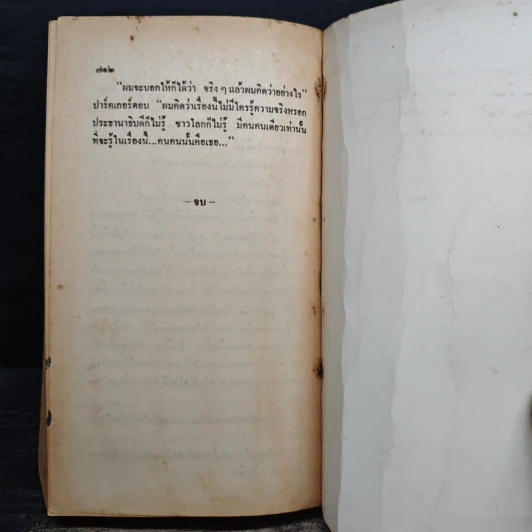 ๗๑๒
"ผมจะบอกให้ก็ได้ว่า จริง ๆ แล้วผมคิดว่าอย่างไร"
ปาร์คเกอร์ตอบ "ผมคิดว่าเรื่องนี้ไม่มีใครรู้ความจริงหรอก
ประธานาธิบดีก็ไม่รู้ ชาวโลกก็ไม่รู้ มีคนคนเดียวเท่านั้น
ที่จะรู้ในเรื่องนี้...คนคนนั้นคือเธอ..."
–จบ–